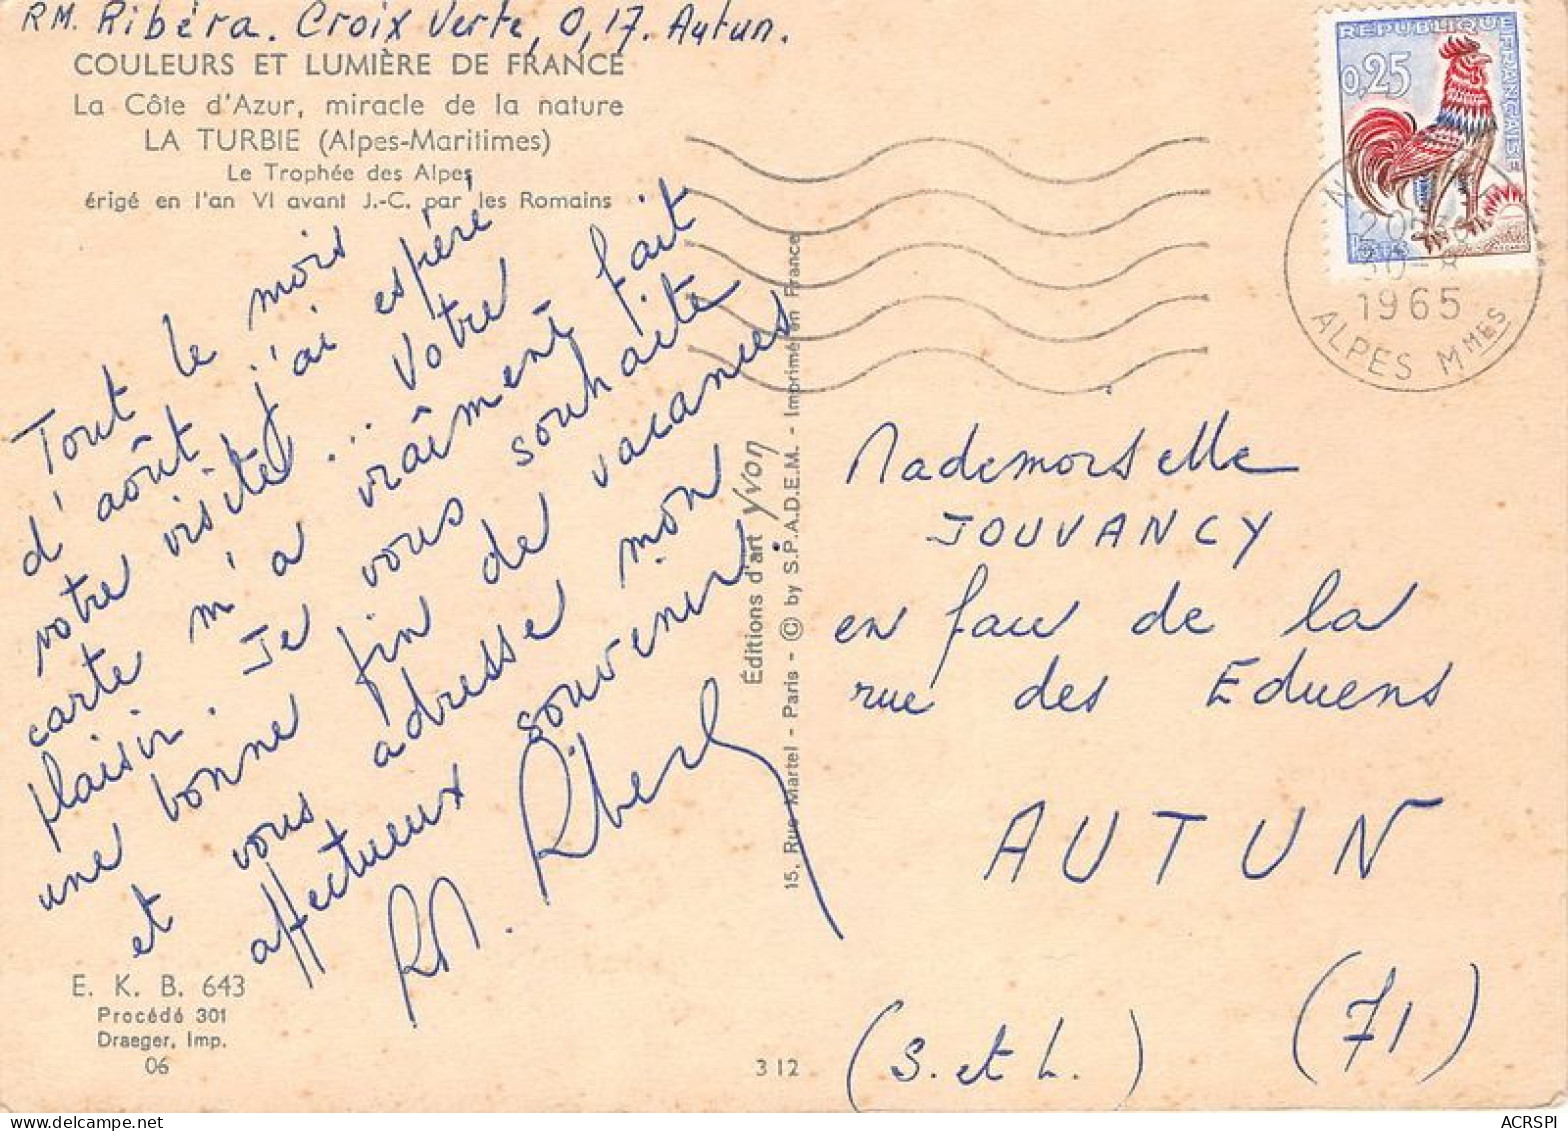 RM. Ribéra. Croix Verte, 0,17. Autun.
COULEURS ET LUMIÈRE DE FRANCE
La Côte d'Azur, miracle de la nature
LA TURBIE (Alpes-Maritimes)
Le Trophée des Alpes
érigé en l'an VI avant J.-C. par les Romains
Tout le mois
d'août j'ai espéré
votre visite... Votre
carte m'a vraiment fait
plaisir. Je vous souhaite
une bonne fin de vacances
et vous adresse mon
affectueux souvenir.
RM. Ribera
E. K. B. 643
Procédé 301
Draeger, Imp.
06
312
Éditions d'art Yvon
15, Rue Martel - Paris - © by S.P.A.D.E.M. - Imprimé en France
REPUBLIQUE FRANÇAISE
0,25
1965
ALPES MMES
Mademoiselle
JOUVANCY
en face de la
rue des Eduens
AUTUN
(S. et L.)
(71)
ACRSPI